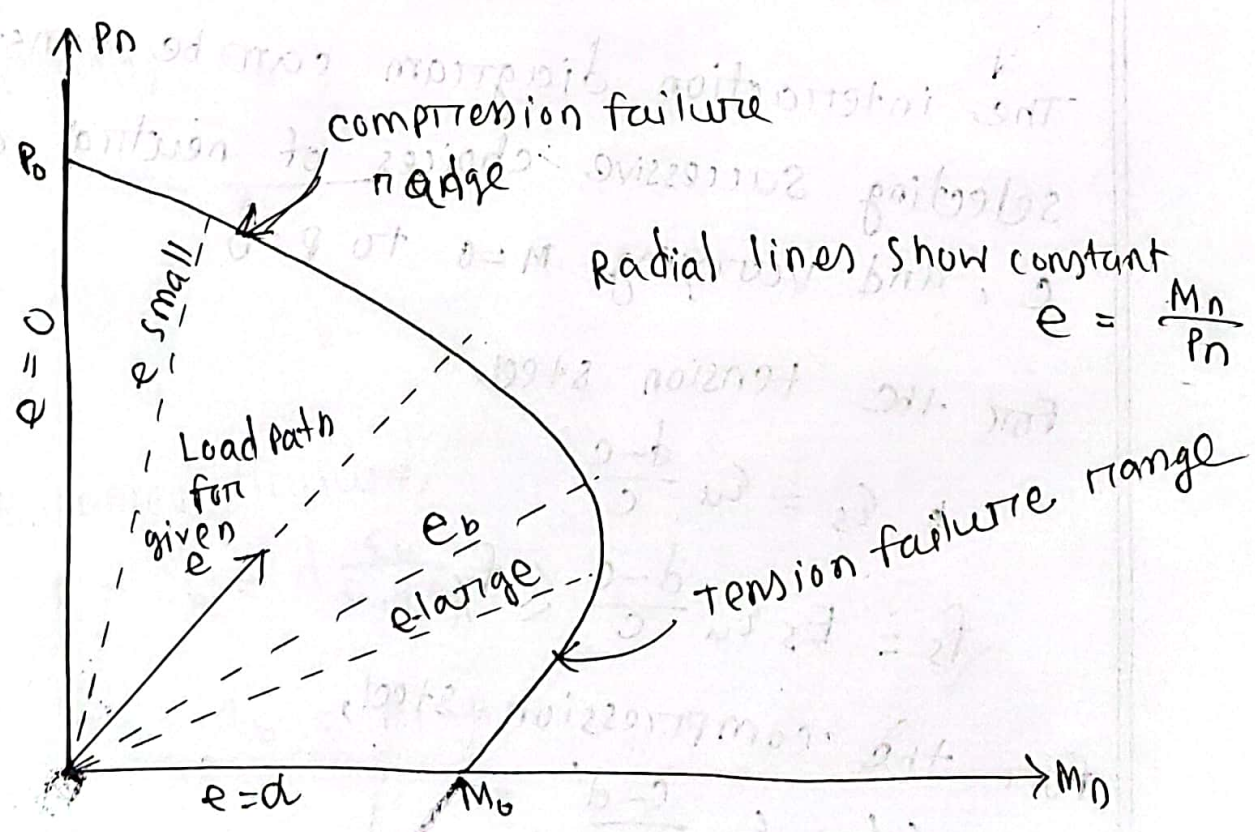 Pn
compression failure
range
P₀
Radial lines show constant
e = Mn
Pn
e = 0
e small
Load path
for
given
e
eb
e large
Tension failure range
e=α
M₀
Mn